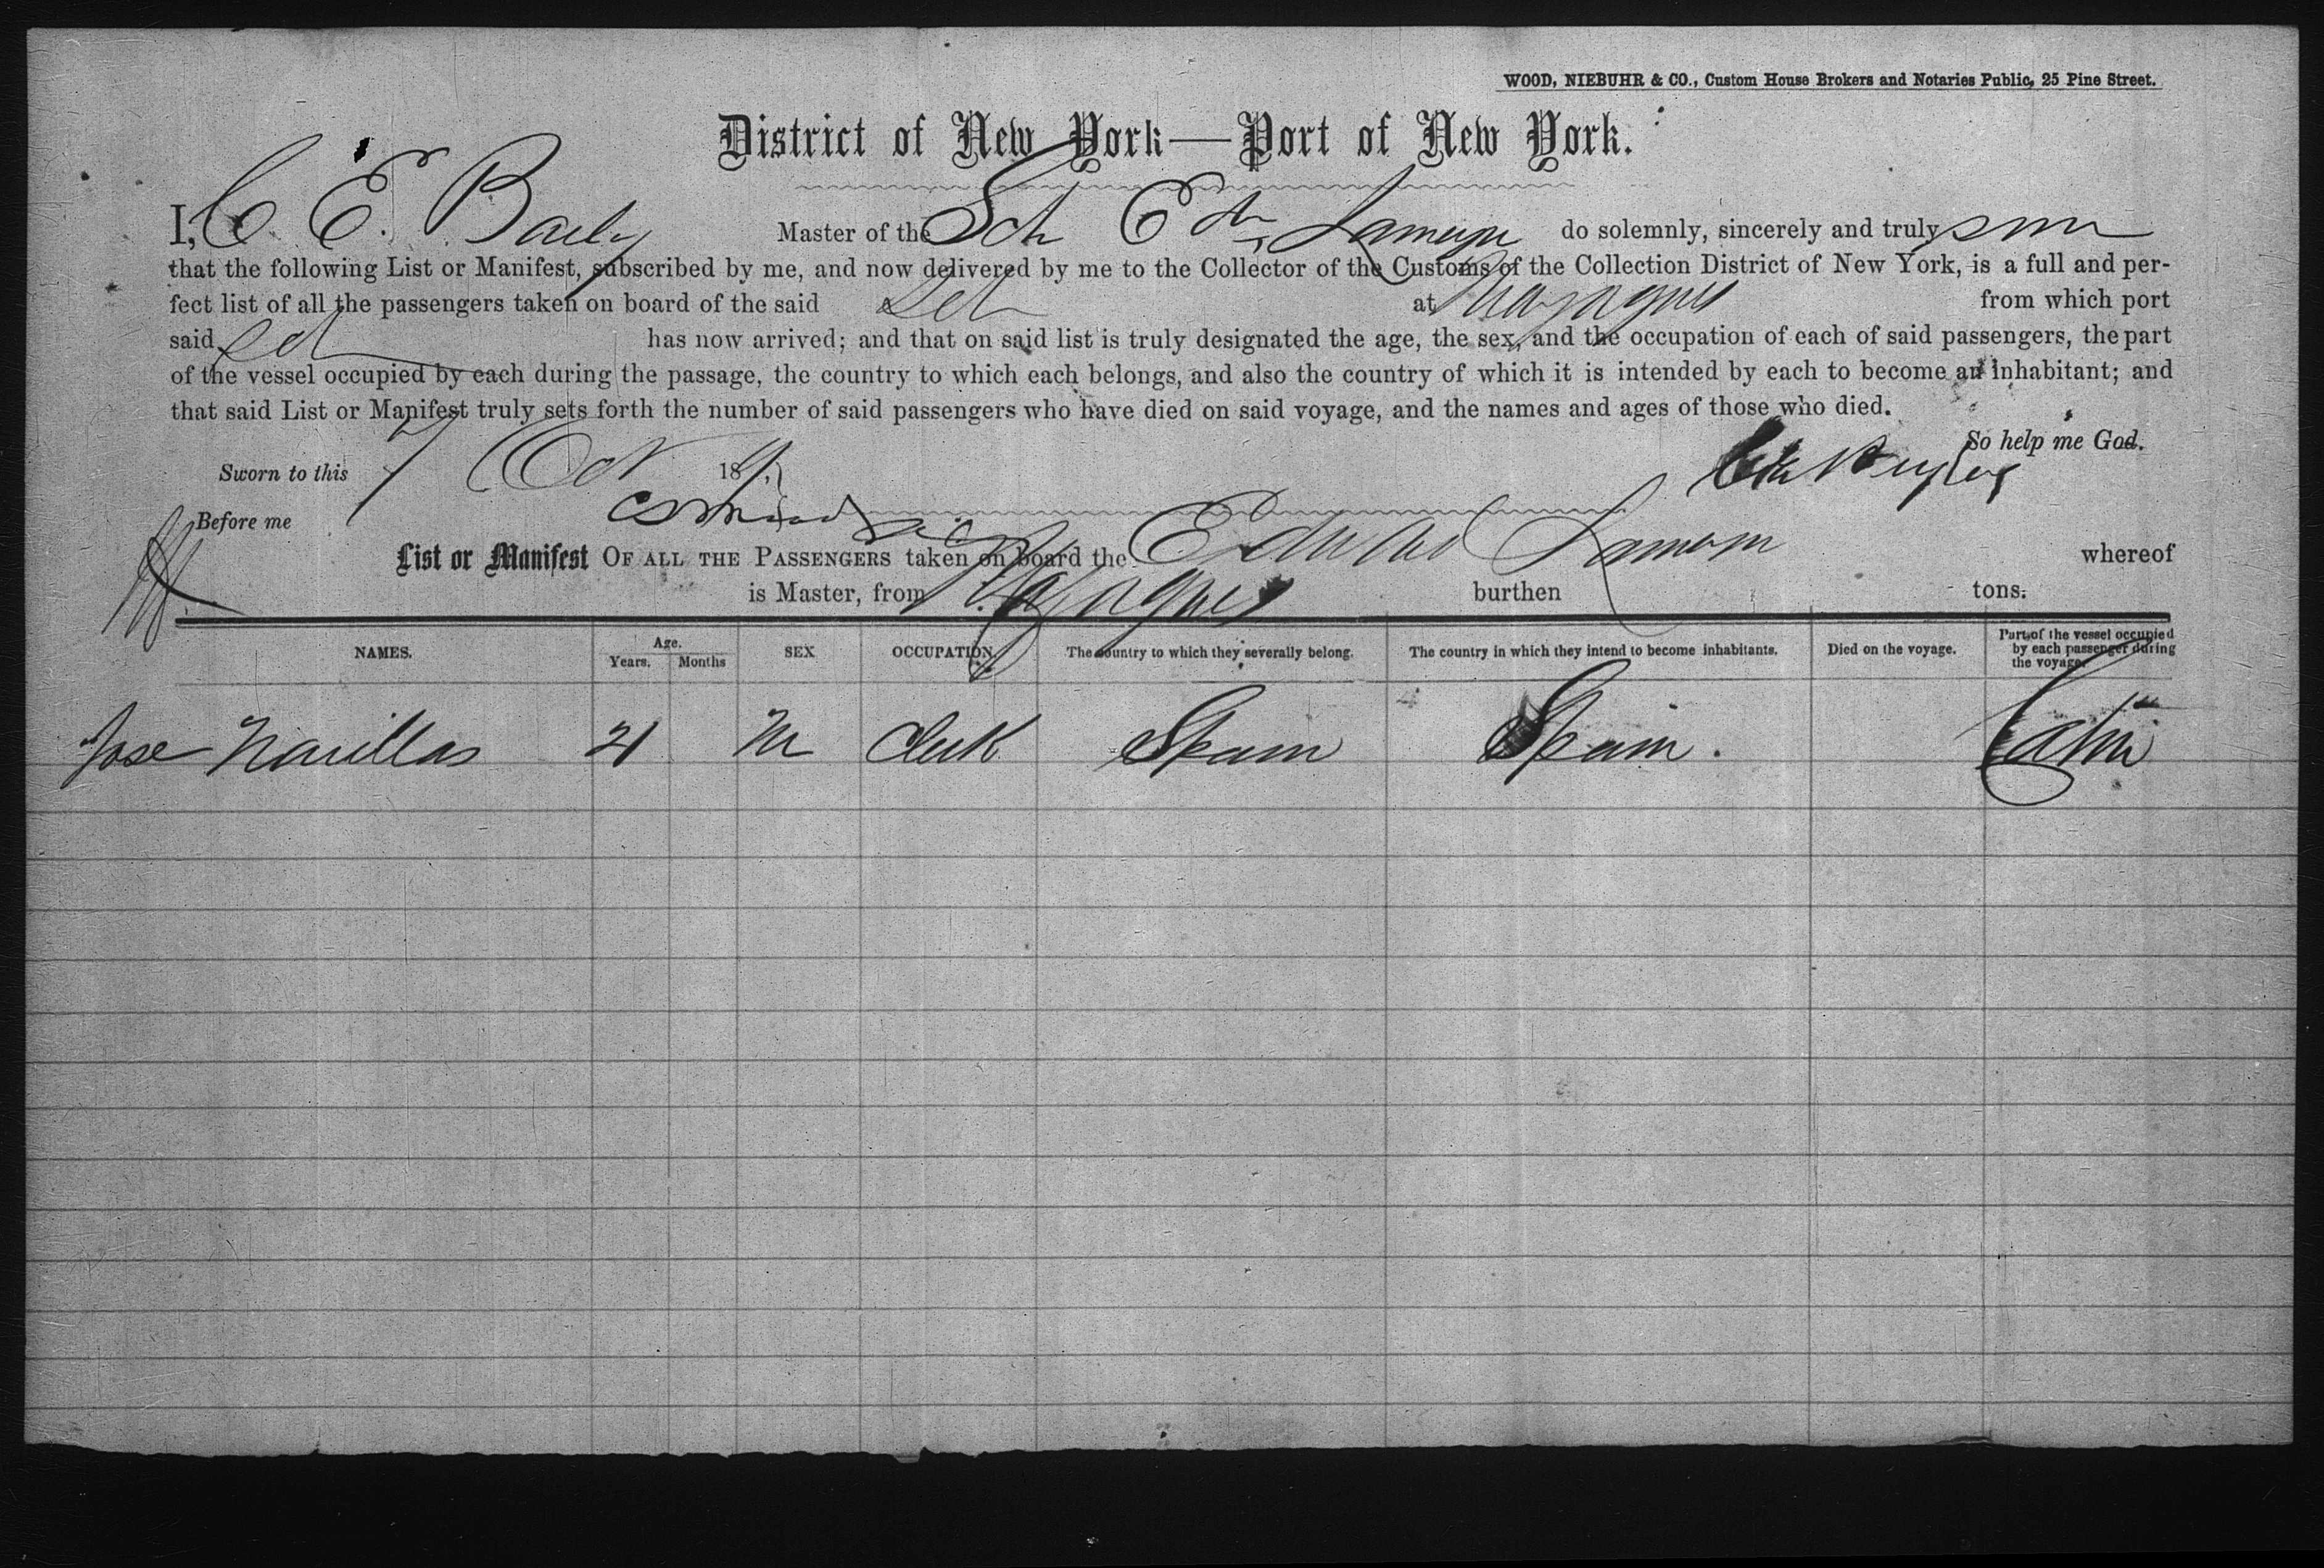 WOOD, NIEBUHR & CO., Custom House Brokers and Notaries Public, 25 Pine Street.
District of New York—Port of New York.
I, C. E. Baely Master of the Sch Edw Lameyer do solemnly, sincerely and truly swear
that the following List or Manifest, subscribed by me, and now delivered by me to the Collector of the Customs of the Collection District of New York, is a full and per-
fect list of all the passengers taken on board of the said Sch at Mayagues from which port
said Sch has now arrived; and that on said list is truly designated the age, the sex, and the occupation of each of said passengers, the part
of the vessel occupied by each during the passage, the country to which each belongs, and also the country of which it is intended by each to become an inhabitant; and
that said List or Manifest truly sets forth the number of said passengers who have died on said voyage, and the names and ages of those who died.
So help me God.
Sworn to this 7 Oct 189
Before me
List or Manifest OF ALL THE PASSENGERS taken on board the Edward whereof
is Master, from Mayagues burthen tons.
NAMES. Age. Years. Months SEX OCCUPATION The country to which they severally belong. The country in which they intend to become inhabitants. Died on the voyage. Part of the vessel occupied by each passenger during the voyage.
Jose 21 M Clerk Spain Spain. Cabin